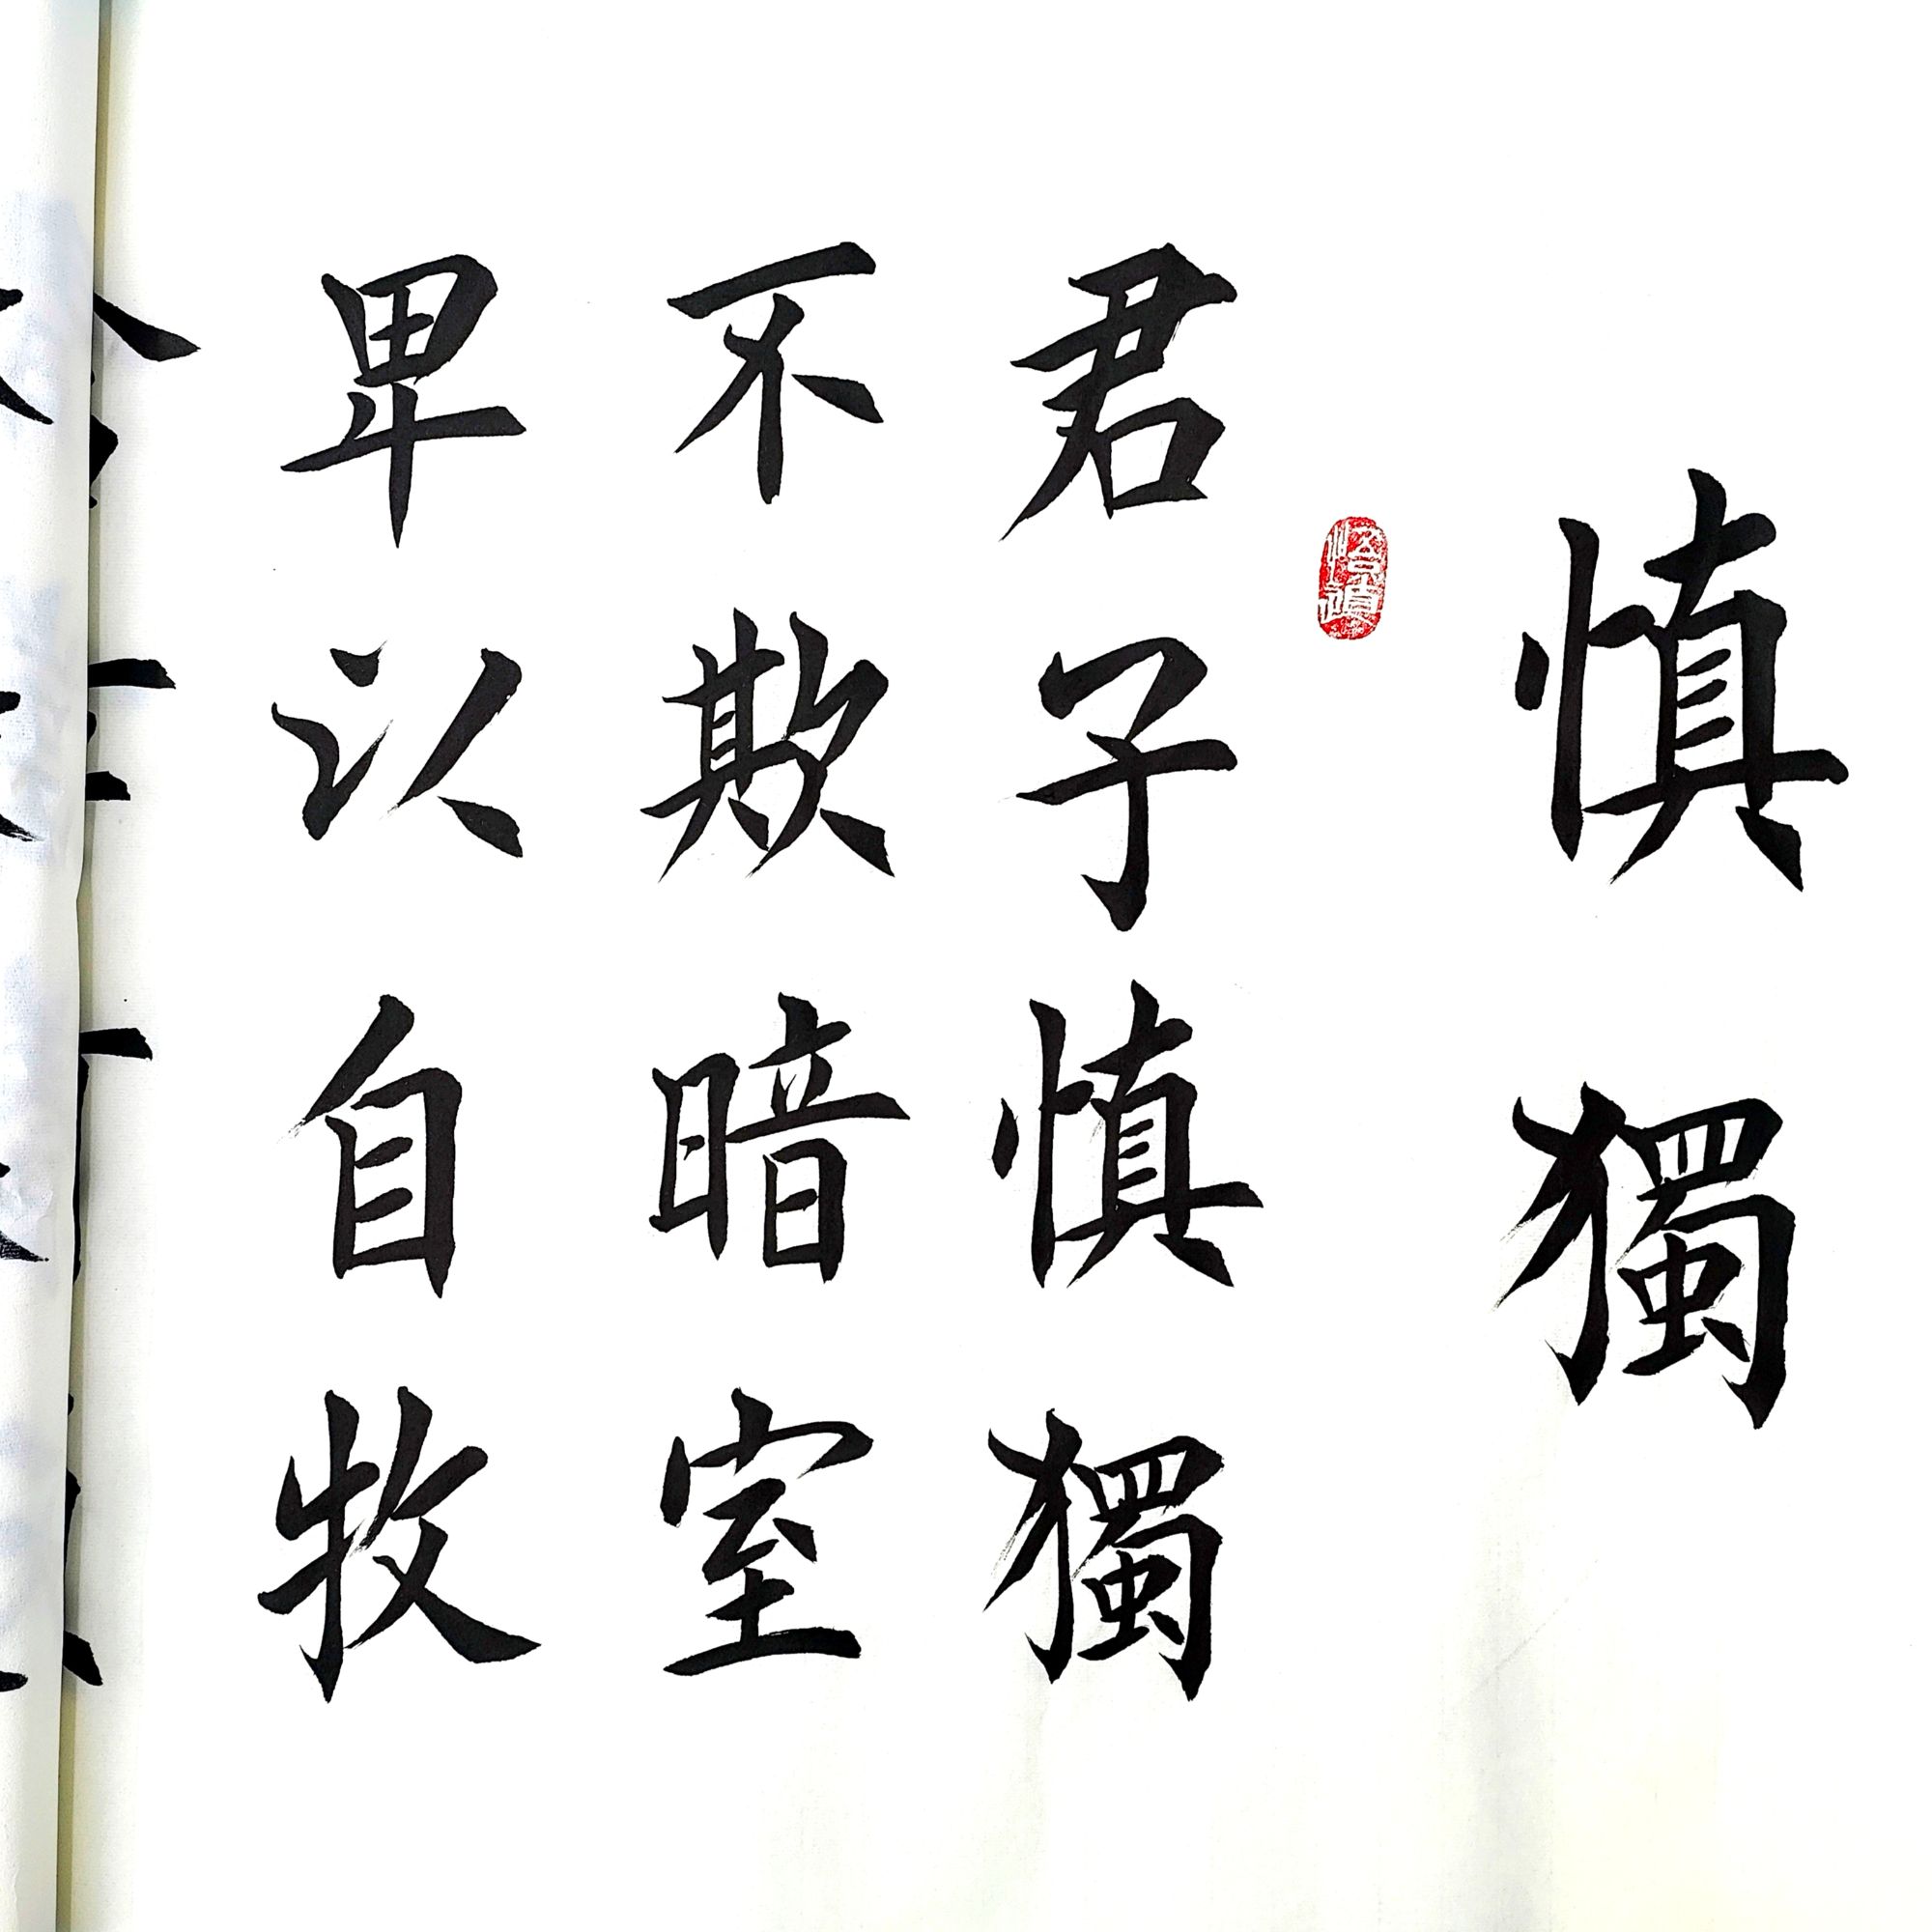 慎獨
君子慎獨
不欺暗室
卑以自牧